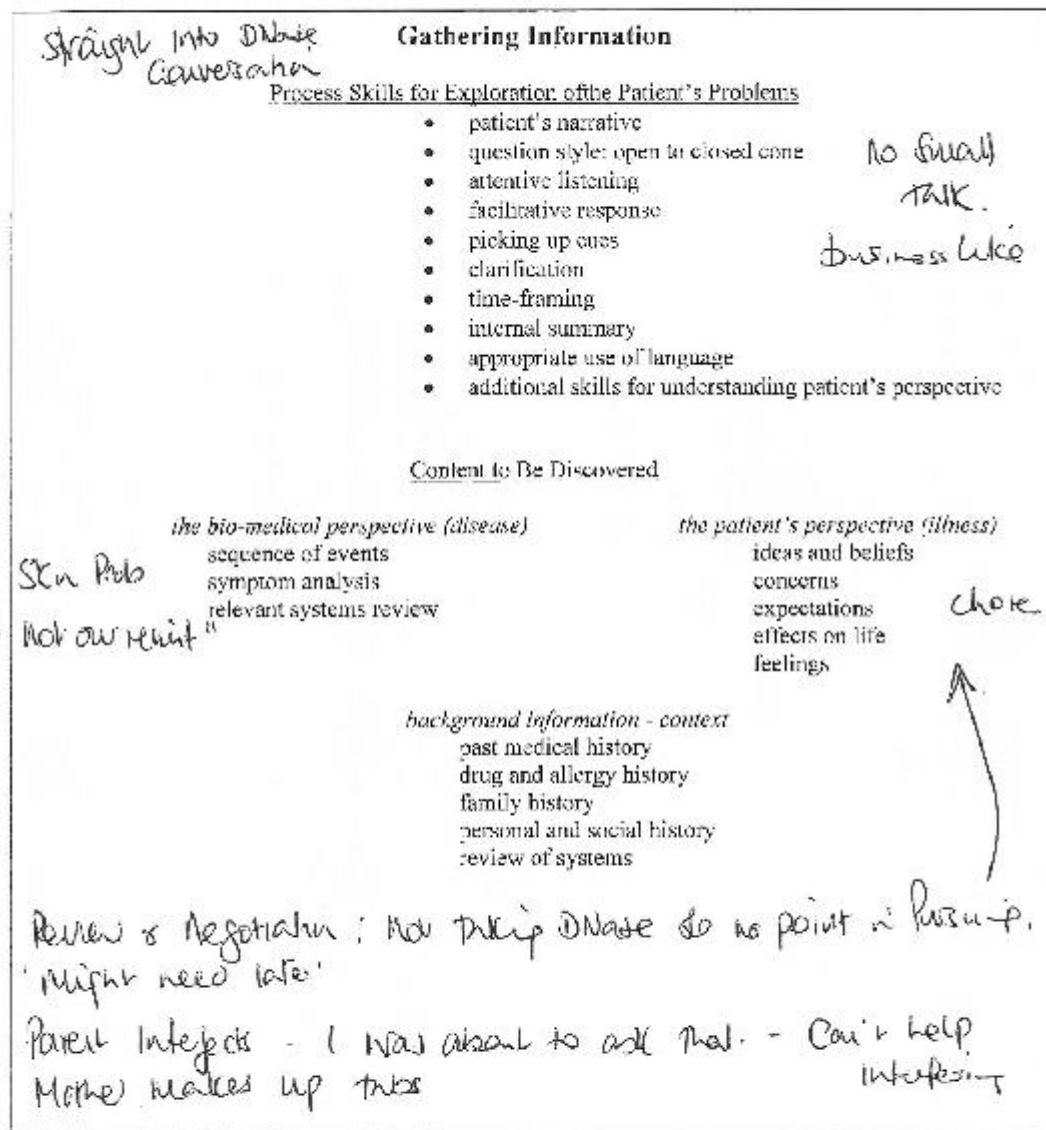 Straight into DNase
Conversation
Gathering Information
Process Skills for Exploration ofthe Patient's Problems
• patient's narrative
• question style: open to closed cone
• attentive listening
• facilitative response
• picking up cues
• clarification
• time-framing
• internal summary
• appropriate use of language
• additional skills for understanding patient's perspective
No Small
Talk.
business like
Content to Be Discovered
the bio-medical perspective (disease)
sequence of events
symptom analysis
relevant systems review
Skn Prob
Not our remit"
the patient's perspective (illness)
ideas and beliefs
concerns
expectations
effects on life
feelings
chore
background information - context
past medical history
drug and allergy history
family history
personal and social history
review of systems
Review & Negotiation : Not taking DNase so no point in
'Might need later'
Parent Interjects - I was about to ask that. - Can't help
interfering
Mother makes up